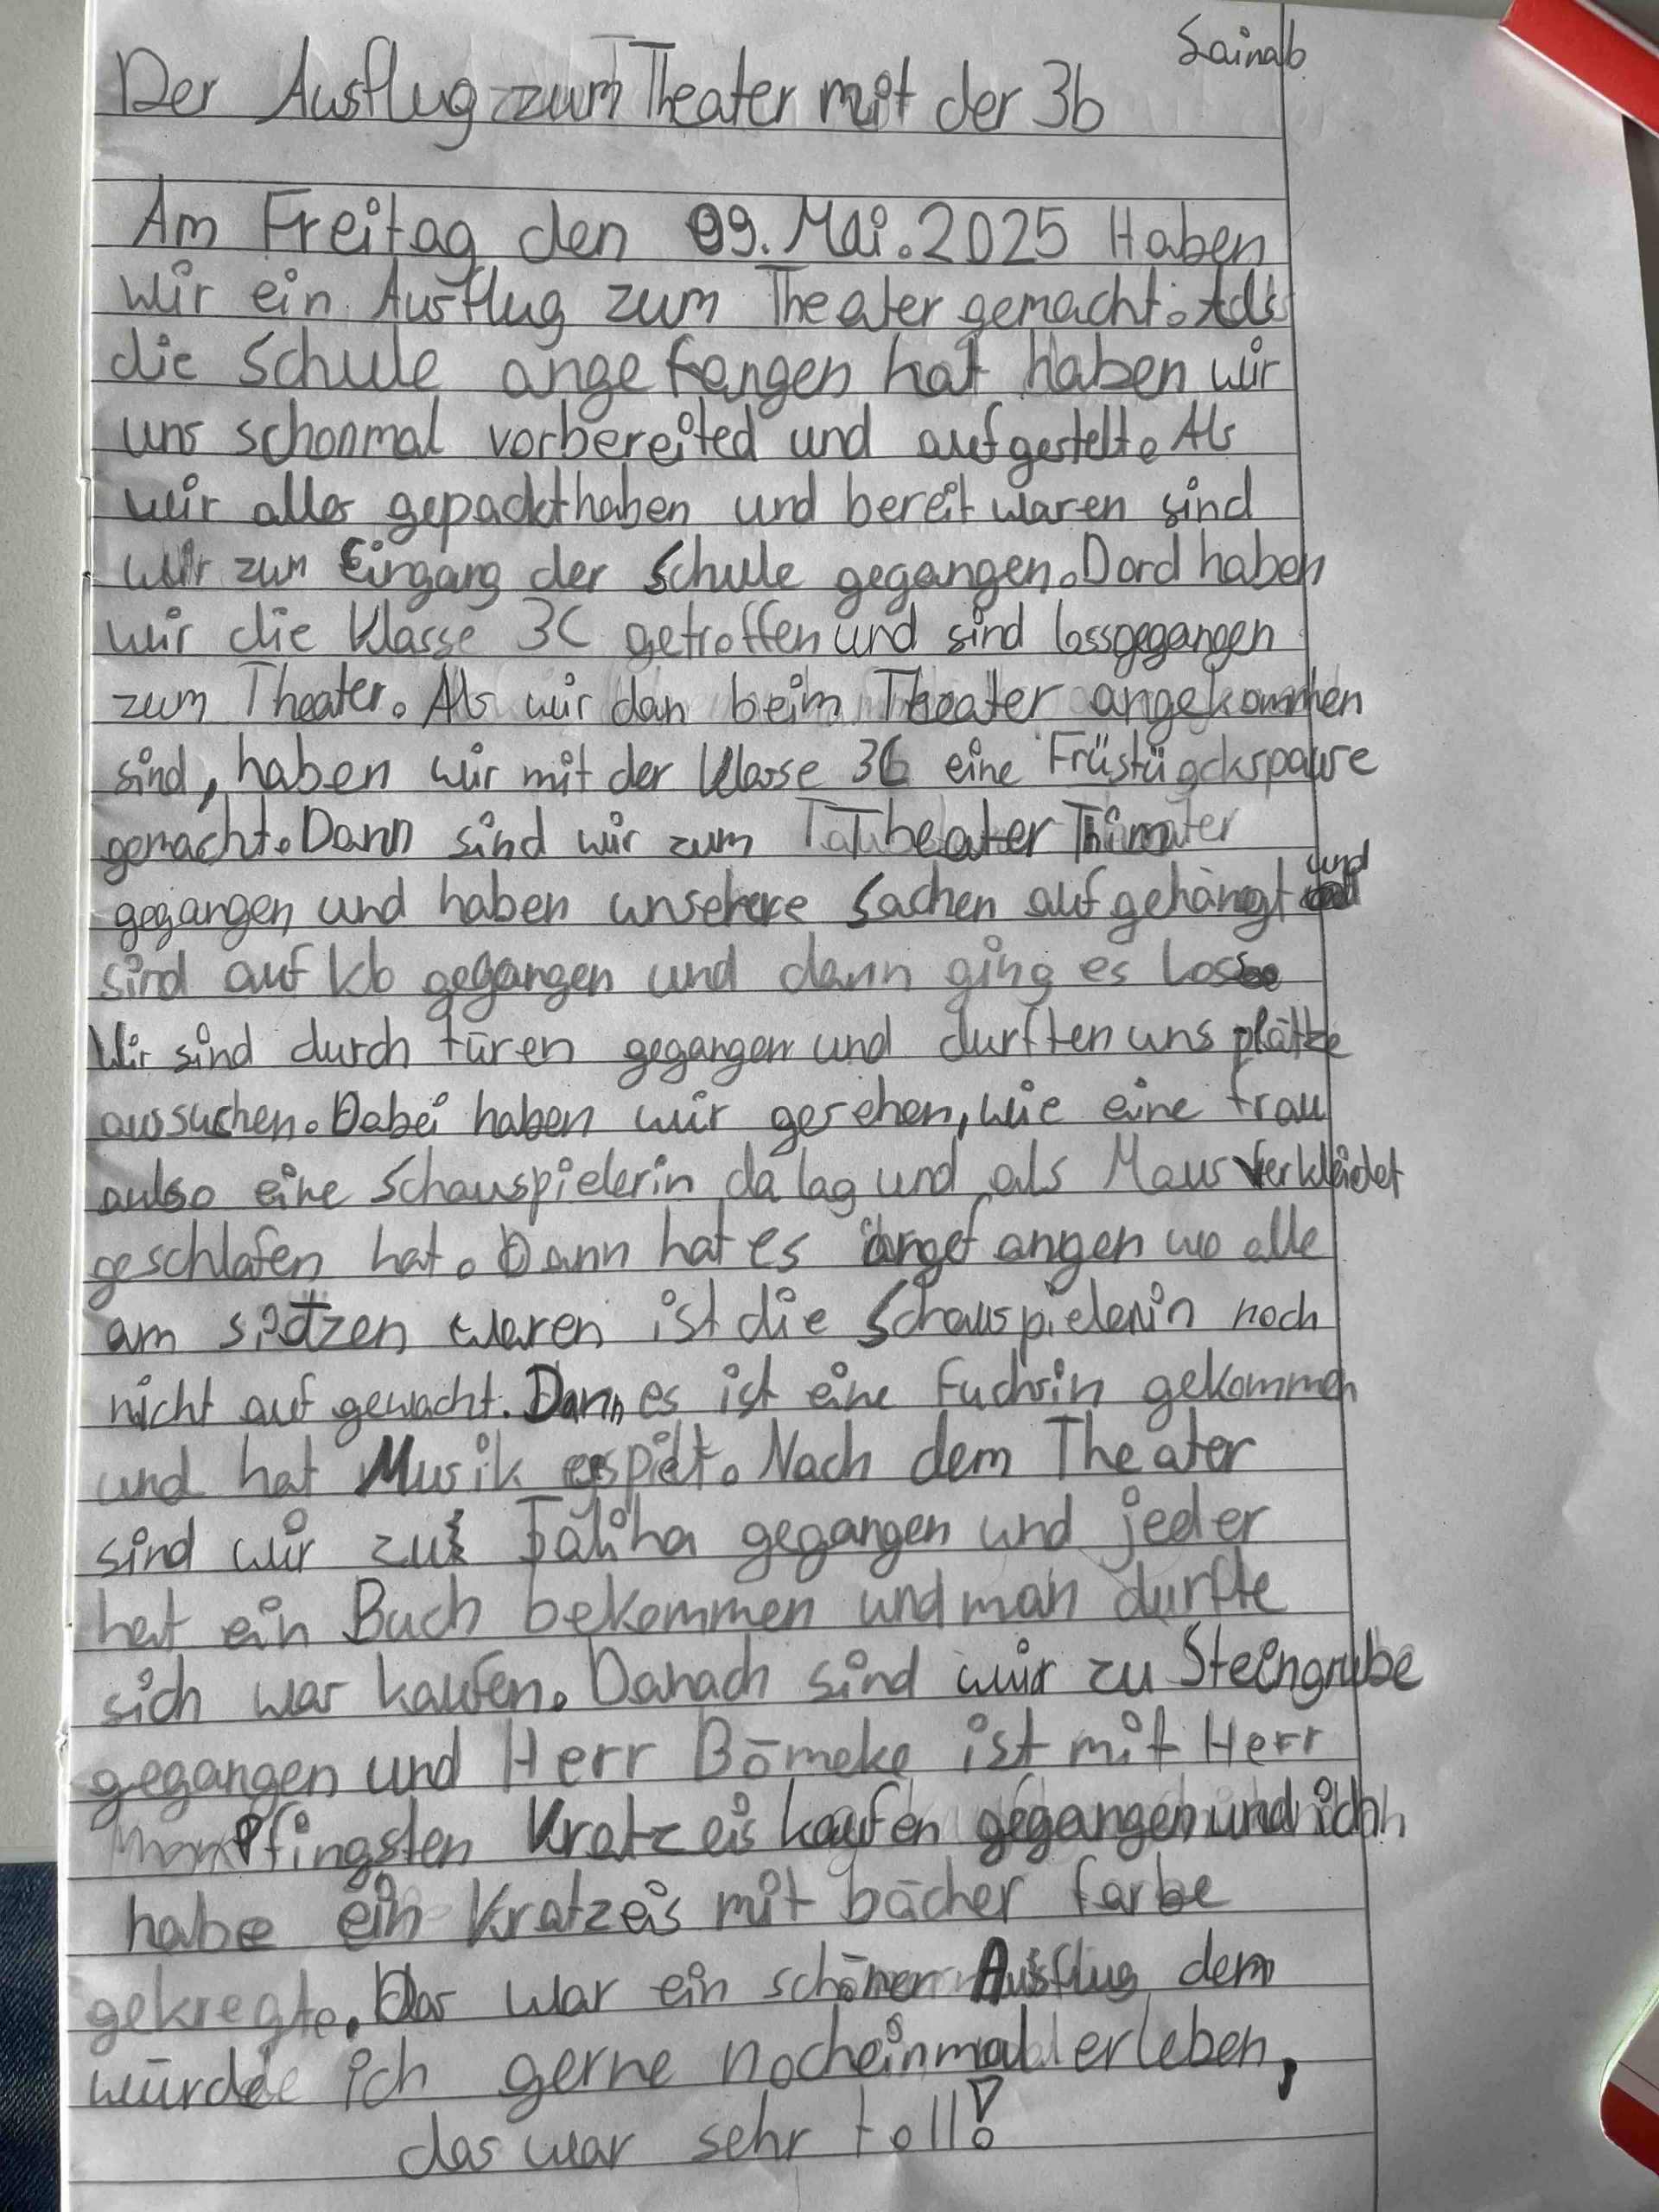 Sainab
Der Ausflug zum Theater mit der 3b
Am Freitag den 09. Mai. 2025 Haben
wir ein Ausflug zum Theater gemacht. Als
die Schule angefangen hat haben wir
uns schonmal vorbereited und aufgestellt. Als
wir alles gepackt haben und bereit waren sind
wir zum Eingang der Schule gegangen. Dord haben
wir die Klasse 3C getroffen und sind lossgegangen
zum Theater. Als wir dan beim Theater angekommen
sind, haben wir mit der Klasse 3b eine Früstügckspause
gemacht. Dann sind wir zum Theater
gegangen und haben unsere Sachen aufgehängt und
sind auf klo gegangen und dann ging es los
Wir sind durch türen gegangen und durften uns plätze
aussuchen. Dabei haben wir gesehen, wie eine frau
also eine Schauspielerin da lag und als Maus verkleidet
geschlafen hat. Dann hat es angefangen wo alle
am sitzen waren ist die Schauspielerin noch
nicht auf gewacht. Dann es ist eine Fuchsin gekommen
und hat Musik espielt. Nach dem Theater
sind wir zu gegangen und jeder
hat ein Buch bekommen und man durfte
sich was kaufen. Danach sind wir zu Steingrube
gegangen und Herr Bömeke ist mit Herr
Pfingsten Kratzeis kaufen gegangen und ich
habe ein Kratzeis mit bächer farbe
gekregte. Das war ein schöner Ausflug den
würde ich gerne nocheinmal erleben,
das war sehr toll!